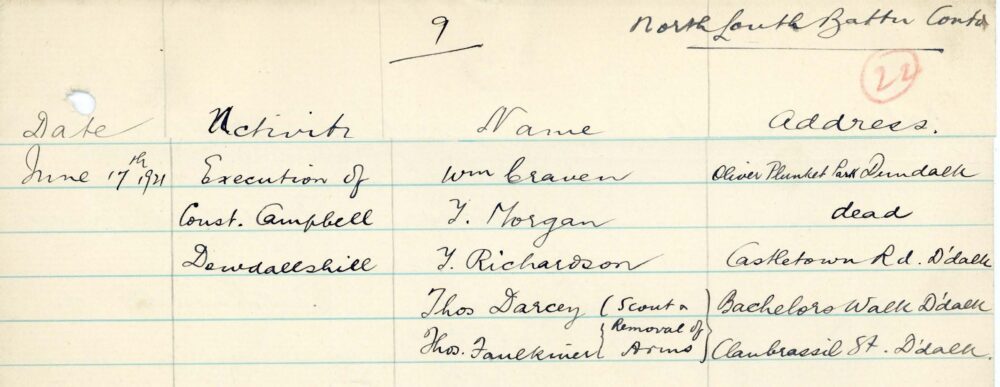 9 North Louth Battn Contd
22
Date Activity Name Address.
June 17th 1921 Execution of Wm Craven Oliver Plunket Park Dundalk
Const. Campbell T. Morgan dead
Dowdallshill T. Richardson Castletown Rd. D'dalk
Thos Darcey (Scout & Bachelors Walk D'dalk
Thos. Faulkiner Removal of Arms Clanbrassil St. D'dalk.